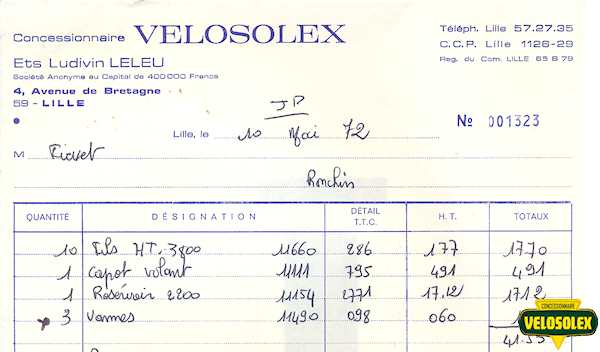 Concessionnaire VELOSOLEX
Ets Ludivin LELEU
Société Anonyme au Capital de 400 000 Francs
4, Avenue de Bretagne
59 - LILLE
Téléph. Lille 57.27.35
C.C.P. Lille 1126-29
Reg. du Com. LILLE 65 B 79
JP
Lille, le 10 Mai 72
Nº 001323
M
Ronchin
QUANTITÉ DÉSIGNATION DÉTAIL T.T.C. H.T. TOTAUX
10 Fils HT. 3800 11660 286 177 1770
1 Capot volant 11111 795 491 491
1 Réservoir 2200 11154 2771 17.12 1712
3 11490 098 060
41.53
CONCESSIONNAIRE
VELOSOLEX